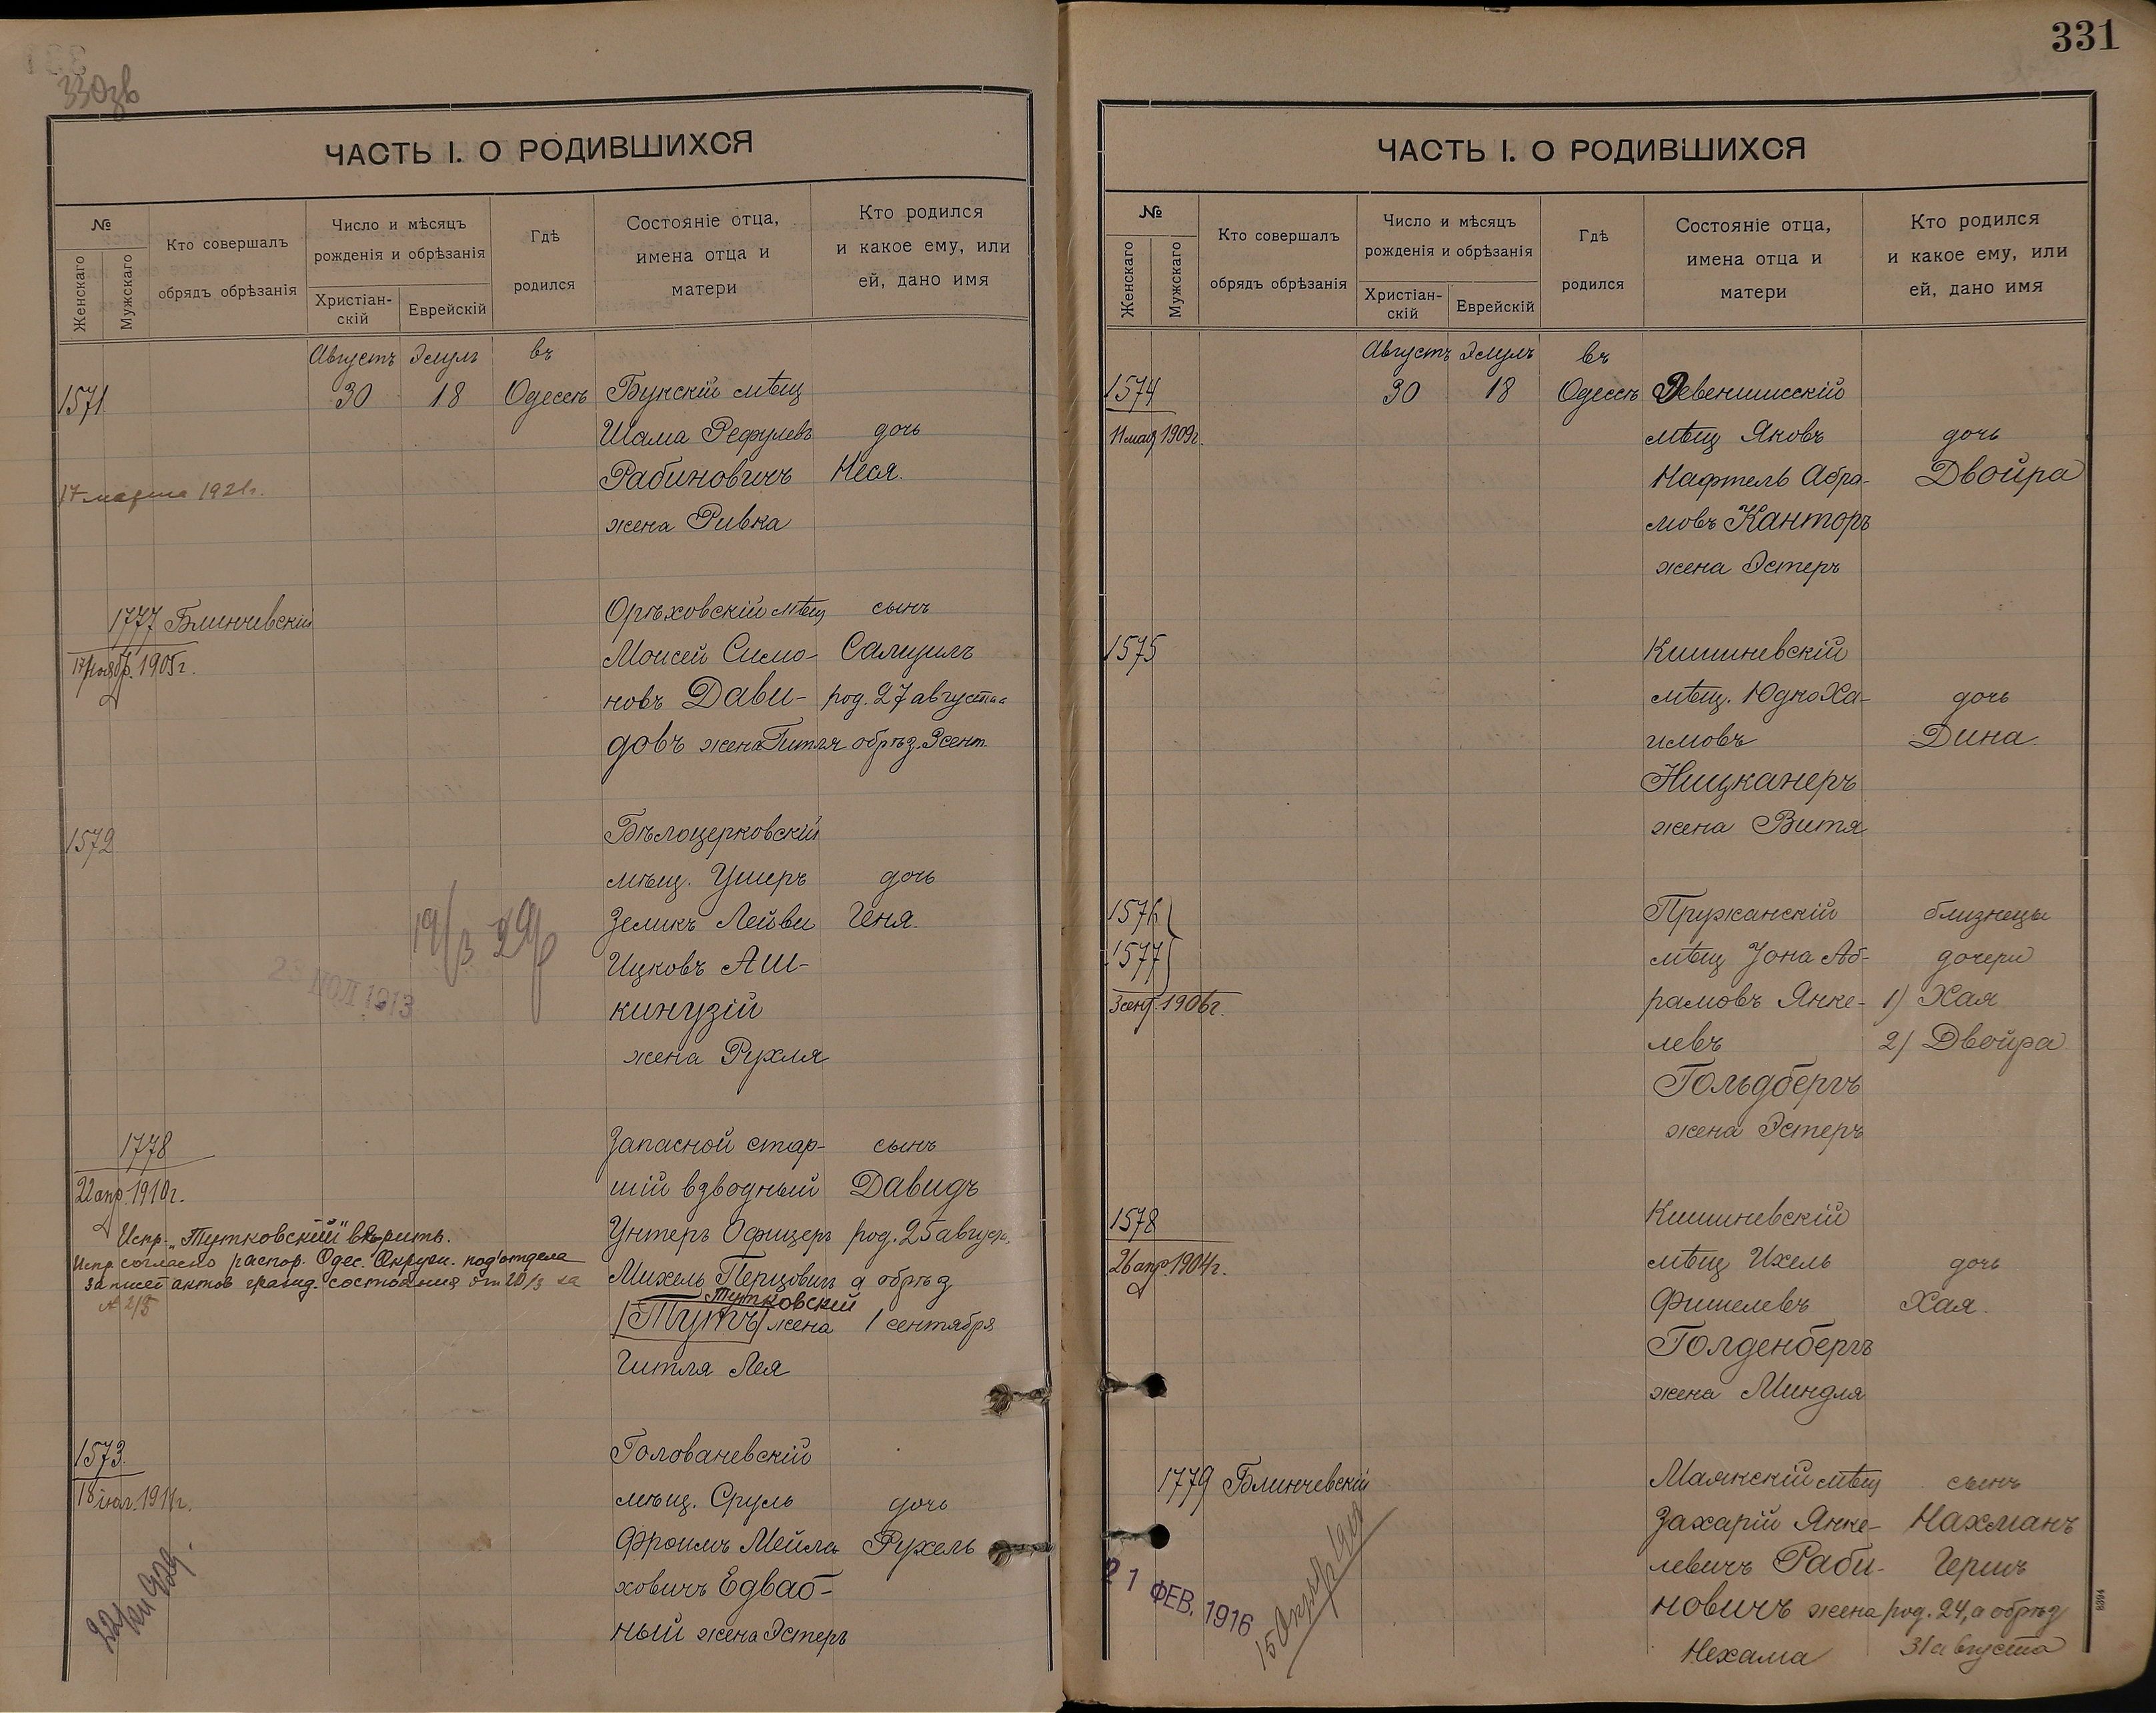 330зв
ЧАСТЬ I. О РОДИВШИХСЯ
№
Женскаго
Мужскаго
Кто совершалъ
обрядъ обрѣзанія
Число и мѣсяцъ
рожденія и обрѣзанія
Христіан-
скій
Еврейскій
Гдѣ
родился
Состояніе отца,
имена отца и
матери
Кто родился
и какое ему, или
ей, дано имя
Августъ Элулъ въ
1571 30 18 Одессѣ Бунскій мѣщ
Шама Рефулевъ дочь
Рабиновичъ Неся.
17 марта 1921г.
жена Ривка
1777 Блинчевскій Орѣховскій мѣщ сынъ
17 ноябр. 1905г. Моисей Симо- Самуилъ
новъ Дави- род. 27 августа
довъ жена Гитля обрѣз. 3 сент.
1572 Бѣлоцерковскій
мѣщ. Ушеръ дочь
Зеликъ Лейви Геня.
19/3 29
Ицковъ Аш-
23 ИЮЛ 1913
кинузій
жена Рухля
1778 Запасной стар- сынъ
22 апр. 1910г. шій взводный Давидъ
Испр. „Тутковскій" вѣрить. Унтеръ Офицеръ род. 25 август,
Испр согласно распор. Одес. Окружн. под'отдела
записей актов гражд. состояния от 20/3 за
№ 215
Михель Перцовичъ а обрѣз
Тутковскій
Тутъ жена 1 сентября
Гитля Лея
1573. Голованевскій
18 іюл. 1911г. мѣщ. Сруль дочь
Фроимъ Мейла Рухель
ховичъ Едваб-
ный жена Эстеръ
331
ЧАСТЬ I. О РОДИВШИХСЯ
№
Женскаго
Мужскаго
Кто совершалъ
обрядъ обрѣзанія
Число и мѣсяцъ
рожденія и обрѣзанія
Христіан-
скій
Еврейскій
Гдѣ
родился
Состояніе отца,
имена отца и
матери
Кто родился
и какое ему, или
ей, дано имя
Августъ Элулъ въ
1574 30 18 Одессѣ Девенишсскій
11 мая 1909г. мѣщ Яковъ дочь
Нафтель Абра- Двойра
мовъ Канторъ
жена Эстеръ
1575 Кишиневскій
мѣщ. Юдко Ха- дочь
имовъ Дина.
Ницканеръ
жена Витя
1576 Пружанскій близнецы
1577 мѣщ Іона Аб- дочери
3 сент. 1906г. рамовъ Янке- 1) Хая
левъ 2) Двойра
Гольдбергъ
жена Эстеръ
1578 Кишиневскій
26 апр. 1904г. мѣщ Ихель дочь
Фишелевъ Хая.
Голденбергъ
жена Миндля
1779 Блинчевскій Маякскій мѣщ сынъ
Захарій Янке- Нахманъ
21 ФЕВ. 1916
левичъ Раби- Гершъ
новичъ жена род. 24, а обрѣз
Нехама 31 августа